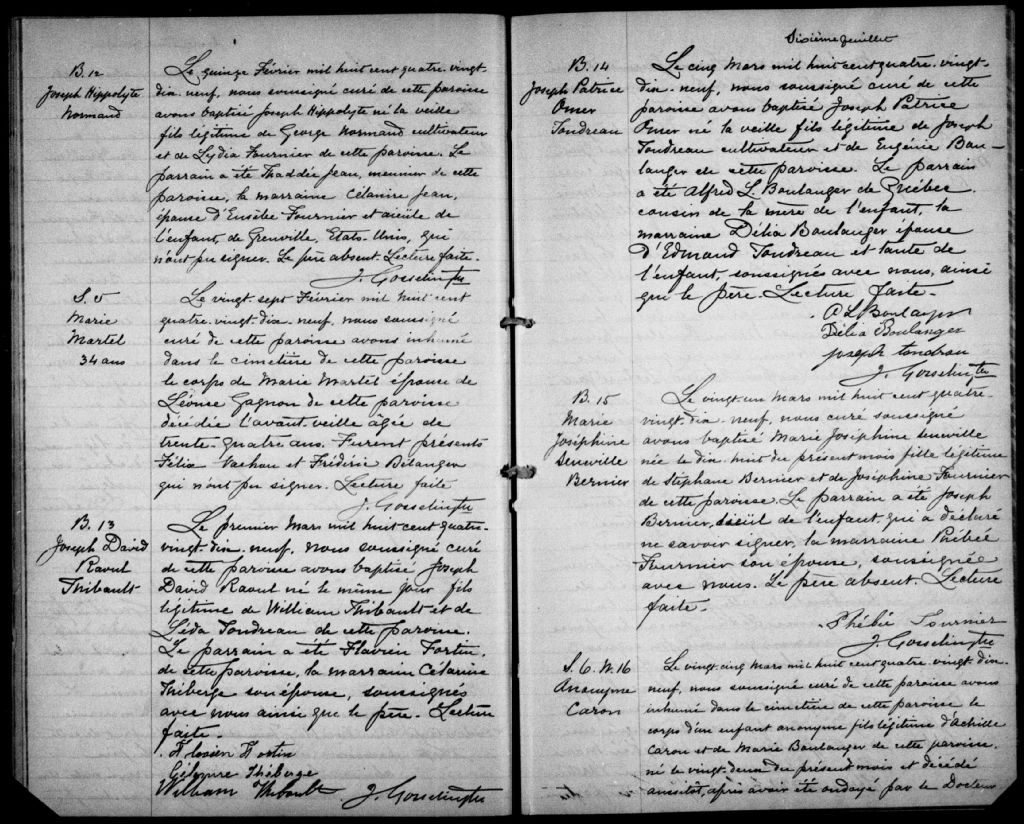 B. 12
Joseph Hippolyte
Normand
Le quinze Février mil huit cent quatre-vingt-
dix-neuf, nous soussigné curé de cette paroisse
avons baptisé Joseph Hippolyte né la veille
fils légitime de George Normand cultivateur
et de Lydia Fournier de cette paroisse. Le
parrain a été Thaddée Jean, meunier de cette
paroisse, la marraine Célanire Jean,
épouse d'Eusèbe Fournier et aieule de
l'enfant, de Grenville, Etats-Unis, qui
n'ont pu signer. Le père absent. Lecture faite.
J. Gosselin ptre
S. 5
Marie
Martel
34 ans
Le vingt-sept Février mil huit cent
quatre-vingt-dix-neuf, nous soussigné
curé de cette paroisse avons inhumé
dans le cimetière de cette paroisse
le corps de Marie Martel épouse de
Léonse Gagnon de cette paroisse
décédée l'avant-veille âgée de
trente-quatre ans. Furent présents
Félix Vachon et Frédéric Bélanger
qui n'ont pu signer. Lecture faite
J. Gosselin ptre
B. 13
Joseph David
Raoul
Thibault
Le premier Mars mil huit cent quatre-
vingt-dix-neuf, nous soussigné curé
de cette paroisse avons baptisé Joseph
David Raoul né le même jour fils
légitime de William Thibault et de
Léda Tondreau de cette paroisse.
Le parrain a été Flavien Fortin
de cette paroisse, la marraine Célanire
Théberge son épouse, soussignés
avec nous ainsi que le père. Lecture
faite.
Flavien Fortin
Théberge
William Thibault J. Gosselin ptre
Sixième feuillet
B. 14
Joseph Patrice
Omer
Tondreau
Le cinq Mars mil huit cent quatre-vingt-
dix-neuf, nous soussigné curé de cette
paroisse avons baptisé Joseph Patrice
Omer né la veille fils légitime de Joseph
Tondreau cultivateur et de Eugénie Bou-
langer de cette paroisse. Le parrain
a été Alfred L. Boulanger de Québec
cousin de la mère de l'enfant, la
marraine Délia Boulanger épouse
d'Edmond Tondreau et tante de
l'enfant, soussignés avec nous, ainsi
que le père. Lecture faite.
A L Boulanger
Délia Boulanger
joseph tondrau
J. Gosselin ptre
B. 15
Marie
Joséphine
Seneville
Bernier
Le vingt-un Mars mil huit cent quatre-
vingt-dix-neuf, nous curé soussigné
avons baptisé Marie Joséphine Seneville
née le dix-huit du présent mois fille légitime
de Stéphane Bernier et de Joséphine Fournier
de cette paroisse. Le parrain a été Joseph
Bernier, aieul de l'enfant qui a déclaré
ne savoir signer, la marraine Phébée
Fournier son épouse, soussignée
avec nous. Le père absent. Lecture
faite.
Phébée Fournier
J. Gosselin ptre
S. 6. N. 16
Anonyme
Caron
Le vingt-cinq Mars mil huit cent quatre-vingt-dix-
neuf, nous soussigné curé de cette paroisse avons
inhumé dans le cimetière de cette paroisse le
corps d'un enfant anonyme fils légitime d'Achille
Caron et de Marie Boulanger de cette paroisse
né le vingt-deux du présent mois et décédé
aussitôt, après avoir été ondoyé par le Docteur